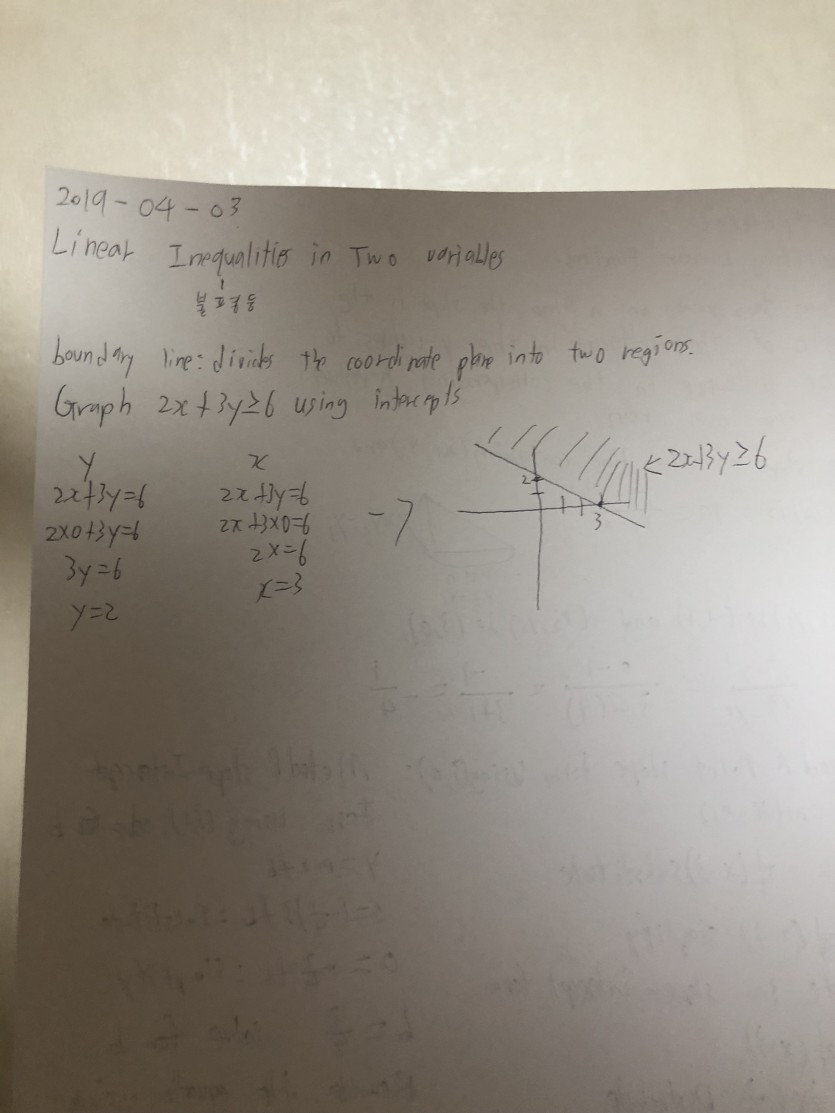 2019-04-03
Linear Inequalities in Two variables
boundary line: divides the coordinate plane into two regions.
Graph 2x+3y≥6 using intercepts
y
2x+3y=6
2x0+3y=6
3y=6
y=2
x
2x+3y=6
2x+3x0=6
2x=6
x=3
2
3
2x+3y≥6